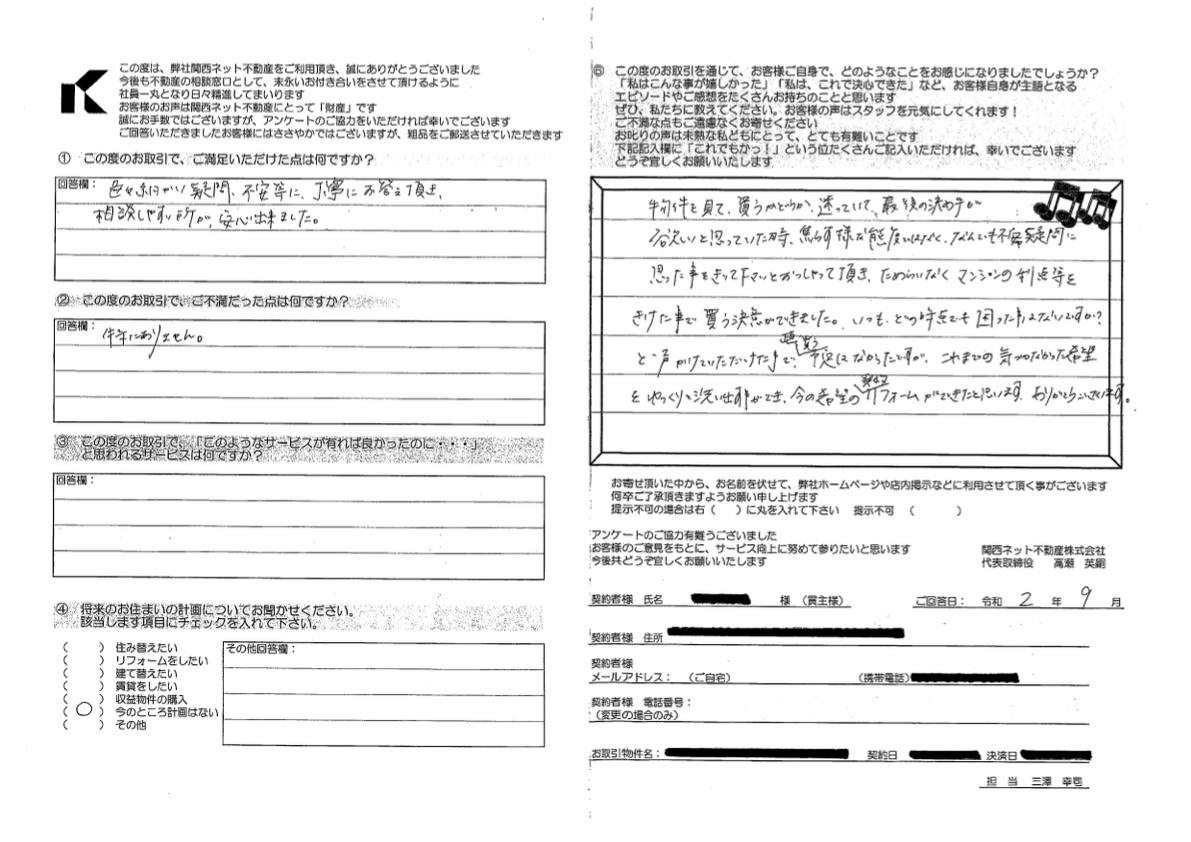 この度は、弊社関西ネット不動産をご利用頂き、誠にありがとうございました
今後も不動産の相談窓口として、末永いお付き合いをさせて頂けるように
社員一丸となり日々精進してまいります
お客様のお声は関西ネット不動産にとって「財産」です
誠にお手数ではございますが、アンケートのご協力をいただければ幸いでございます
ご回答いただきましたお客様にはささやかではございますが、粗品をご郵送させていただきます
① この度のお取引で、ご満足いただけた点は何ですか?
回答欄: 色々細かい疑問、不安等に、丁寧にお答え頂き、
相談しやすい所が、安心出来ました。
② この度のお取引で、ご不満だった点は何ですか?
回答欄: 特にありません。
③ この度のお取引で、「このようなサービスが有れば良かったのに・・・」
と思われるサービスは何ですか?
回答欄:
④ 将来のお住まいの計画についてお聞かせください。
該当します項目にチェックを入れて下さい。
( ) 住み替えたい
( ) リフォームをしたい
( ) 建て替えたい
( ) 賃貸をしたい
( ) 収益物件の購入
( ○ ) 今のところ計画はない
( ) その他
その他回答欄:
⑤ この度のお取引を通じて、お客様ご自身で、どのようなことをお感じになりましたでしょうか?
「私はこんな事が嬉しかった」「私は、これで決心できた」など、お客様自身が主語となる
エピソードやご感想をたくさんお持ちのことと思います
ぜひ、私たちに教えてください。お客様の声はスタッフを元気にしてくれます!
ご不満な点もご遠慮なくお寄せください
お叱りの声は未熟な私どもにとって、とても有難いことです
下記記入欄に「これでもかっ!」という位たくさんご記入いただければ、幸いでございます
どうぞ宜しくお願いいたします
物件を見て、買うかどうか、迷っていて、最後の決め手が
欲しいと思っていた時、な態度ではなく、なんでも不安疑問に
思った事をきって下さいとおっしゃって頂き、ためらいなくマンションの利点等を
きけた事で買う決意ができました。いつも、どの時点でも困った事はないですか?
と声かけていただけた事で、予定はなかったですが、これまでの気づかなかった希望
をゆっくり洗い出す事ができ、今の希望のリフォームができたと思います。ありがとうございます。
お寄せ頂いた中から、お名前を伏せて、弊社ホームページや店内掲示などに利用させて頂く事がございます
何卒ご了承頂きますようお願い申し上げます
提示不可の場合は右( )に丸を入れて下さい 提示不可 ( )
アンケートのご協力有難うございました
お客様のご意見をもとに、サービス向上に努めて参りたいと思います
今後共どうぞ宜しくお願いいたします
関西ネット不動産株式会社
代表取締役 高瀬 英嗣
契約者様 氏名 様 (買主様) ご回答日: 令和 2 年 9 月
契約者様 住所
契約者様
メールアドレス: (ご自宅) (携帯電話)
契約者様 電話番号:
(変更の場合のみ)
お取引物件名: 契約日 決済日
担 当 三澤 幸司